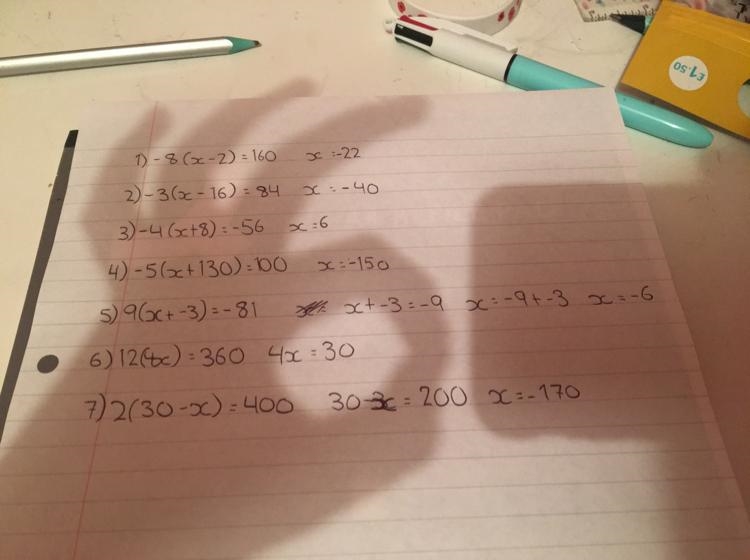 £1.50
1) -8(x-2)=160 x=-22
2) -3(x-16)=84 x=-40
3) -4(x+8)=-56 x=6
4) -5(x+130)=100 x=-150
5) 9(x+-3)=-81 x+-3=-9 x=-9+-3 x=-6
6) 12(4x)=360 4x=30
7) 2(30-x)=400 30-x=200 x=-170